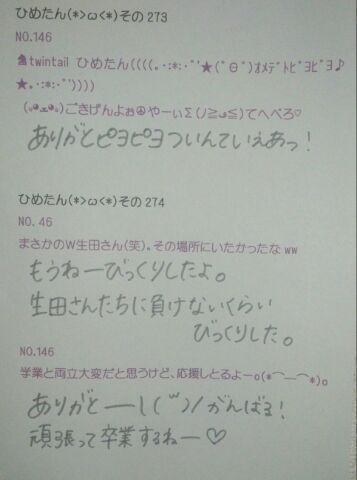 ひめたん(*>ω<*)その273
NO.146
♞twintail ひめたん((((｡･:*:･ﾟ'★(ﾟΘﾟ)ｵﾒﾃﾞﾄﾋﾟﾖﾋﾟﾖ♪
★｡･:*:･ﾟ'))))
(๑◕ܫ◕๑)ごきげんよぉ☮やーぃΣ(ノ≧ڡ≦)てへぺろ♡
ありがとピヨピヨついんていえあっ!
ひめたん(*>ω<*)その274
NO.46
まさかのW生田さん(笑)｡その場所にいたかったなww
もうねーびっくりしたよ。
生田さんたちに負けないくらい
びっくりした。
NO.146
学業と両立大変だと思うけど､応援しとるよーo(*⌒―⌒*)o
ありがとーーし(''')/がんばる!
頑張って卒業するねー♡